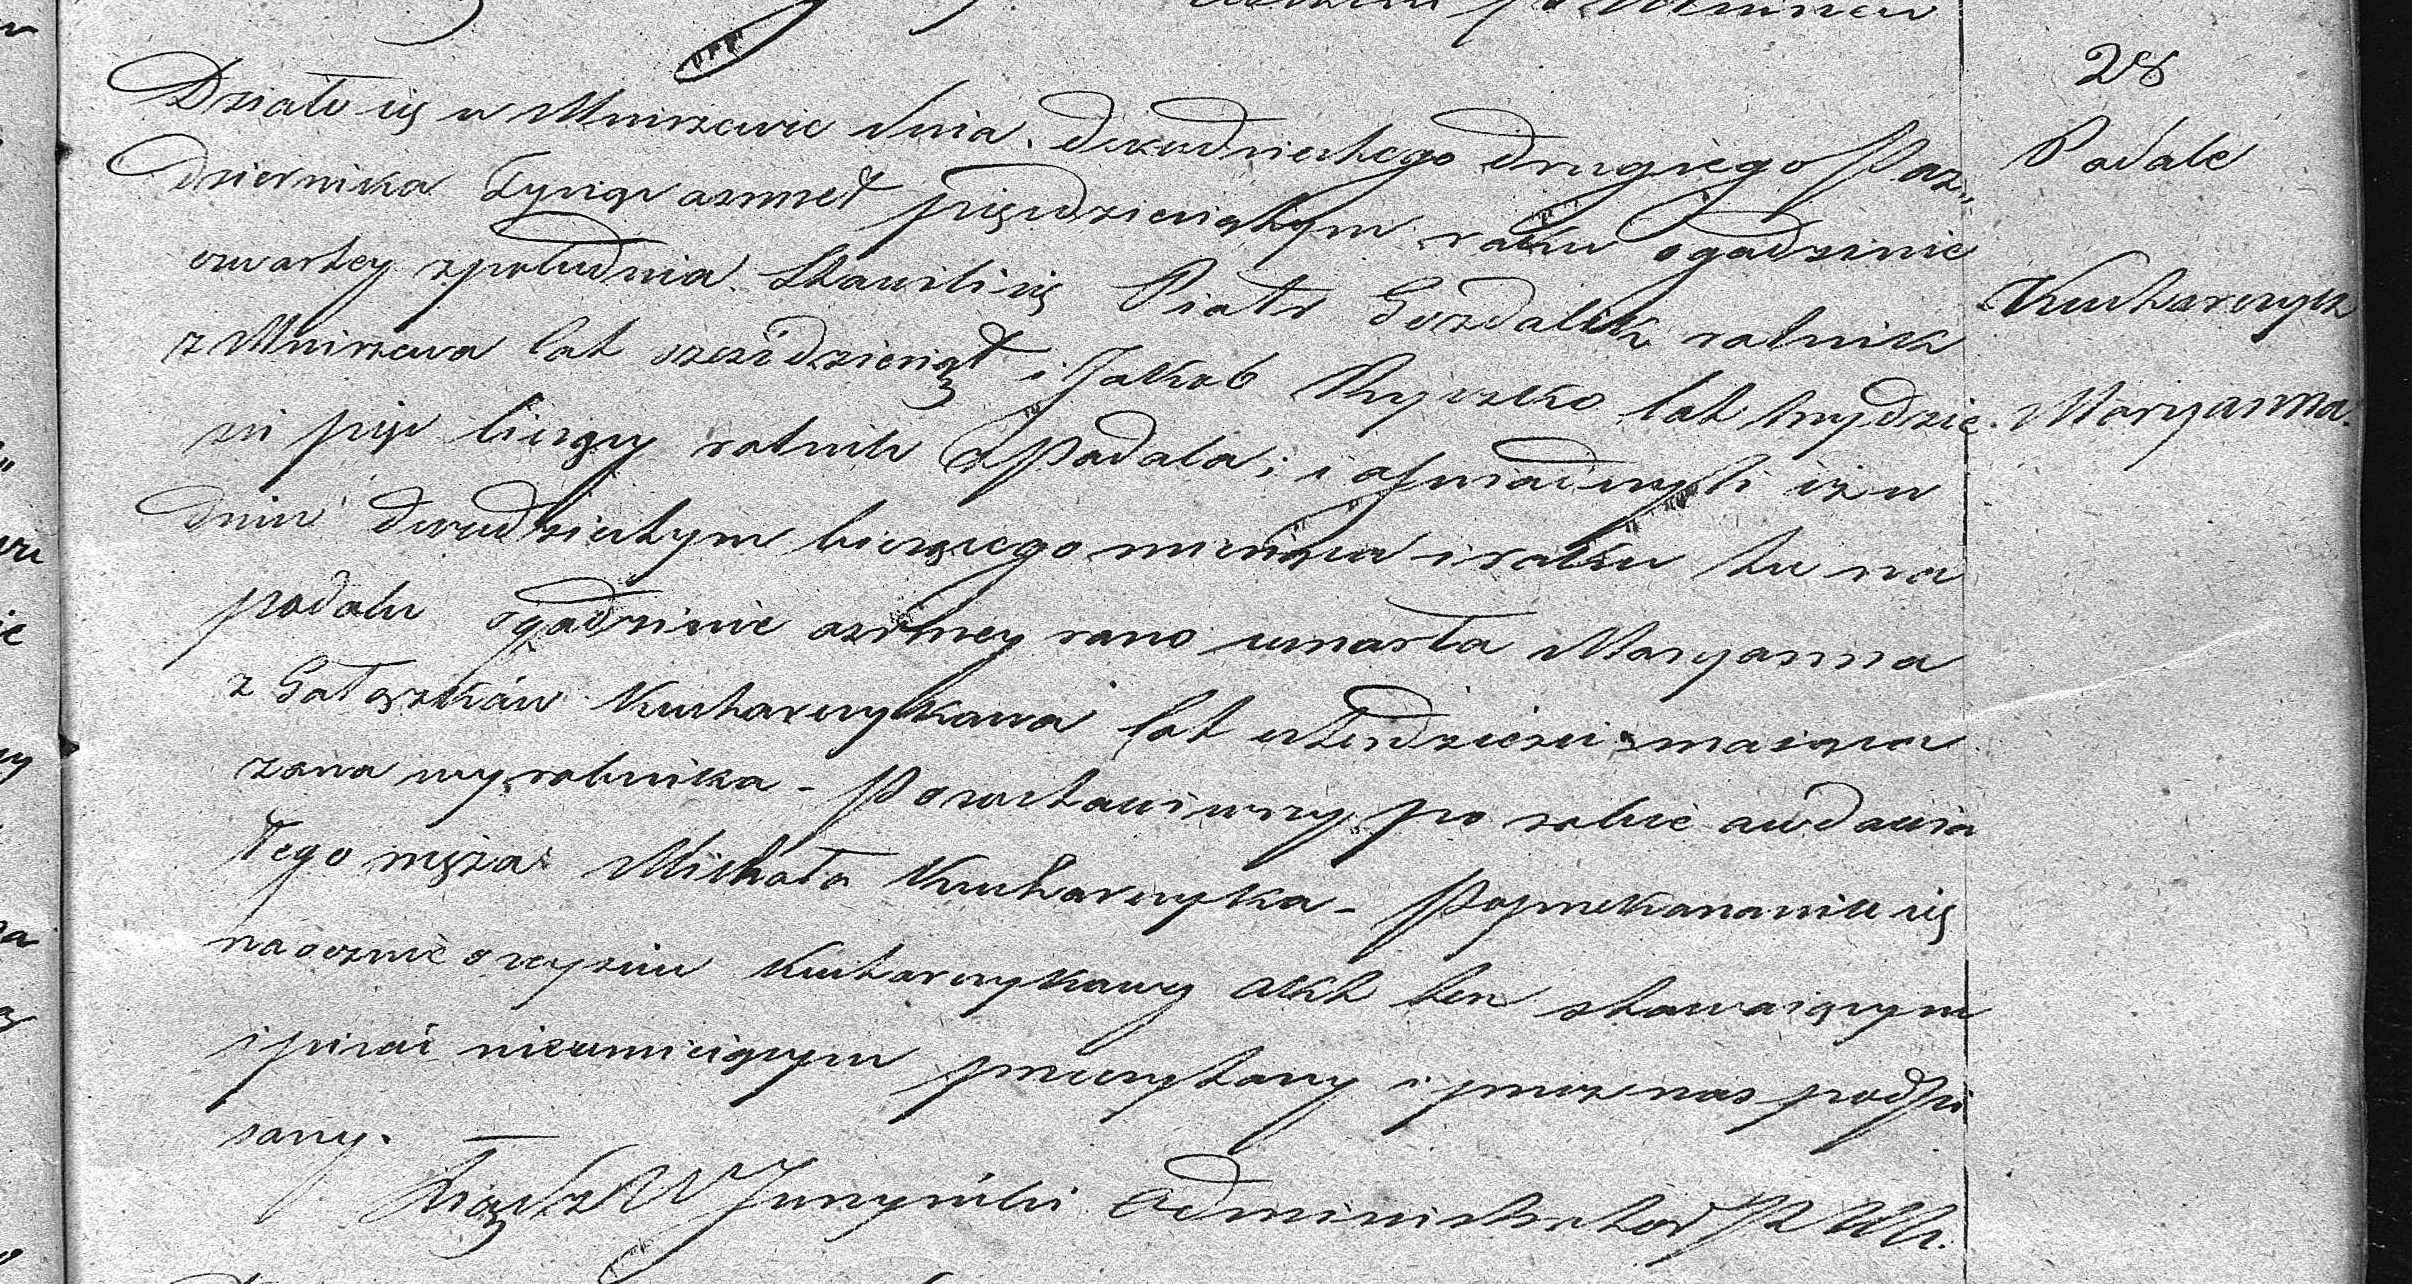 28
Podole
Kucharczyk
Maryanna.
Działo się w Mniszewie dnia dwudziestego drugiego Paz„
dziernika Tysiąc osmset pięcdziesiątym roku o godzinie
czwartey z południa. Stawili się Piotr Gozdalik rolnik
z Mniszewa lat sześćdziesiąt i Jakob Ryszko lat trzydzie
sci pięc liczący rolnik z Podola; i oswiadczyli iż w
dniu dwudziestym bieżącego miesiąca i roku tu na
podolu o godzinie osmey rano umarła Maryanna
z Gałązków Kucharczykowa lat czterdziesci maiąca
zona wyrobnika - Pozostawiwszy po sobie owdowia
łego męża Michała Kucharczyka - Po przekonaniu się
naocznie o zeyściu Kucharczykowy akt ten stawaiącym
i pisać nieumieiącym przeczytany i przez nas podpi
sany.
Xiądz W Administrator P. M.